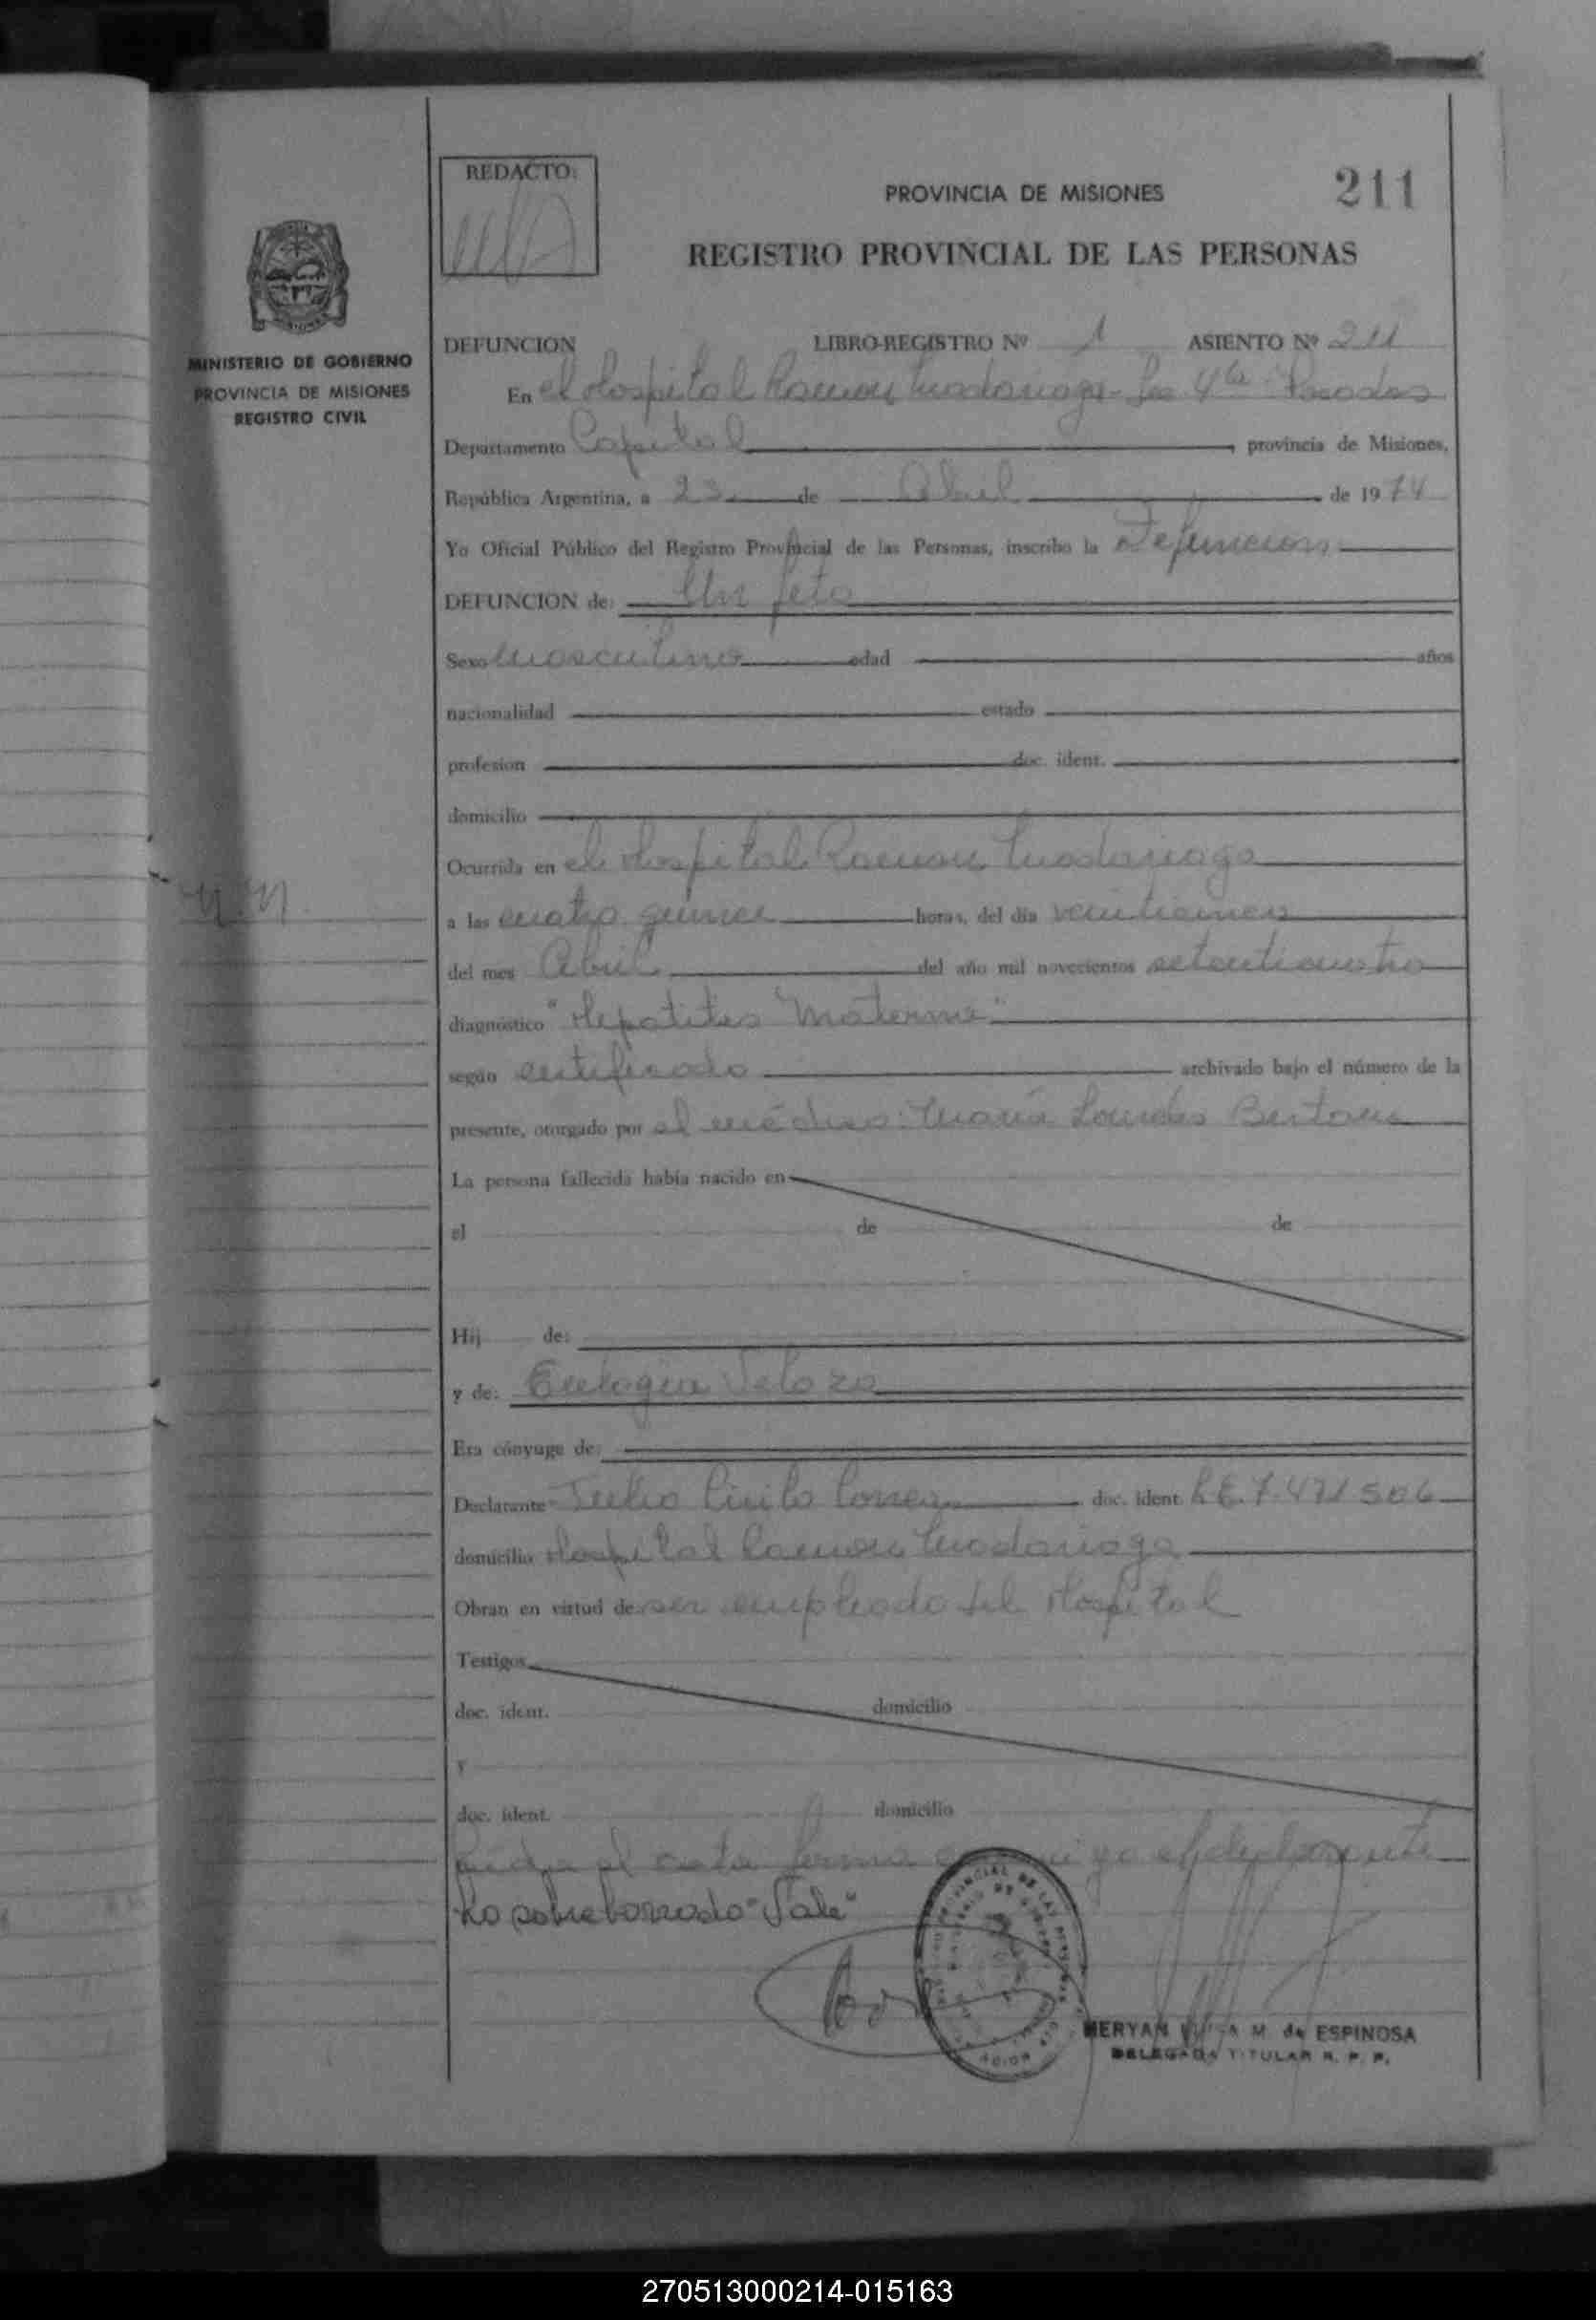 REDACTO:
PROVINCIA DE MISIONES
211
REGISTRO PROVINCIAL DE LAS PERSONAS
MINISTERIO DE GOBIERNO
PROVINCIA DE MISIONES
REGISTRO CIVIL
DEFUNCION LIBRO-REGISTRO Nº 1 ASIENTO Nº 211
En el Hospital Ramon Madariaga Posadas
Departamento Capital, provincia de Misiones,
República Argentina, a 23 de Abril de 1974
Yo Oficial Público del Registro Provincial de las Personas, inscribo la Defuncion
DEFUNCION de: Un feto
Sexo masculino edad años
nacionalidad estado
profesion doc. ident.
domicilio
Ocurrida en el Hospital Ramon Madariaga
N.N.
a las cuatro quince horas, del día
del mes Abril del año mil novecientos setenticuatro
diagnóstico "Hepatitis Materna"
según certificado archivado bajo el número de la
presente, otorgado por el médico: Maria Lourdes
La persona fallecida había nacido en
el de de
Hij de:
y de: Eulogia Velozo
Era cónyuge de:
Declarante Julio Cirilo doc. ident. L.E. 7.471506
domicilio Hospital Ramon Madariaga
Obran en virtud de ser empleado del Hospital
Testigos
doc. ident. domicilio
y
doc. ident. domicilio
Leida el acta firma el declarante
sobre borrado "Vale"
MERYAN LUISA M. de ESPINOSA
DELEGADA TITULAR R. P. P.
270513000214-015163